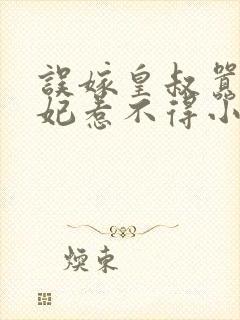 誤嫁皇叔
妃惹不得小
煐東